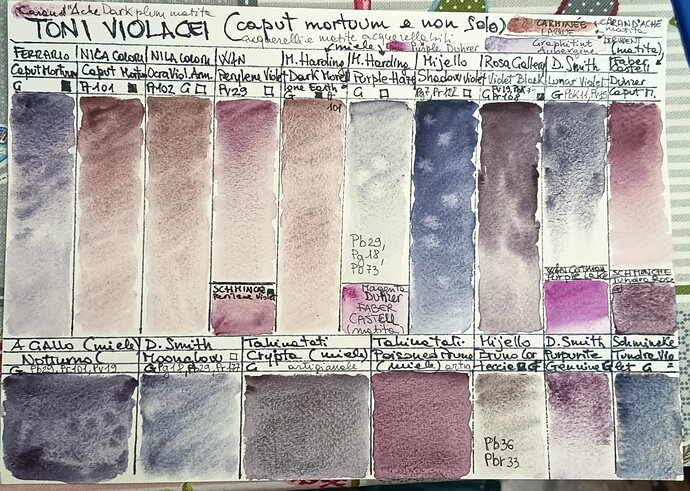 Caran d'Ache Dark plum matita
TONI VIOLACEI (caput mortuum e non solo)
acquerelli e matite acquerellabili
CARMINEE LAQUE
CARAN D'ACHE matita
(miele)
Purple Duhrer
Graphitint Aubergine
DERWENT (matita)
FERRARIO
NILA COLORI
NILA COLORI
W&N
M. Harding
M. Harding
Mijello
Rosa Gallery
D. Smith
Faber Castell
Caput Mortuum
Caput Mort
Ocra Viol. Am.
Perylene Violet
Dark Morel
Purple-Haze
Shadow violet
Violet Black
Lunar Violet
Duhrer
G
Pr101
Pr102 G
Pv29
one Earth
G
Pr122 G
Caput M.
101
Pb29,
Pg18,
Po73
SCHMINCKE
Perilene Violet
Magenta
Duhrer
FABER
CASTELL
(matita)
W&N Cotman
Purple Lake
SCHMINCKE
Tundra Rose
A GALLO (miele)
D. Smith
Tahinatati
Tahinatati
Mijello
D. Smith
Schmincke
Notturno
Moonglow
Crypta (miele)
Poisoned Prune
Bruno Cor
Purpurite
Tundra Vio
G Pb29, Pr101, Pv19
G Pg18, Pb29, Pr177
G artigianale
(miele)
teccia
Genuine G
let G
Pb36
Pbr33